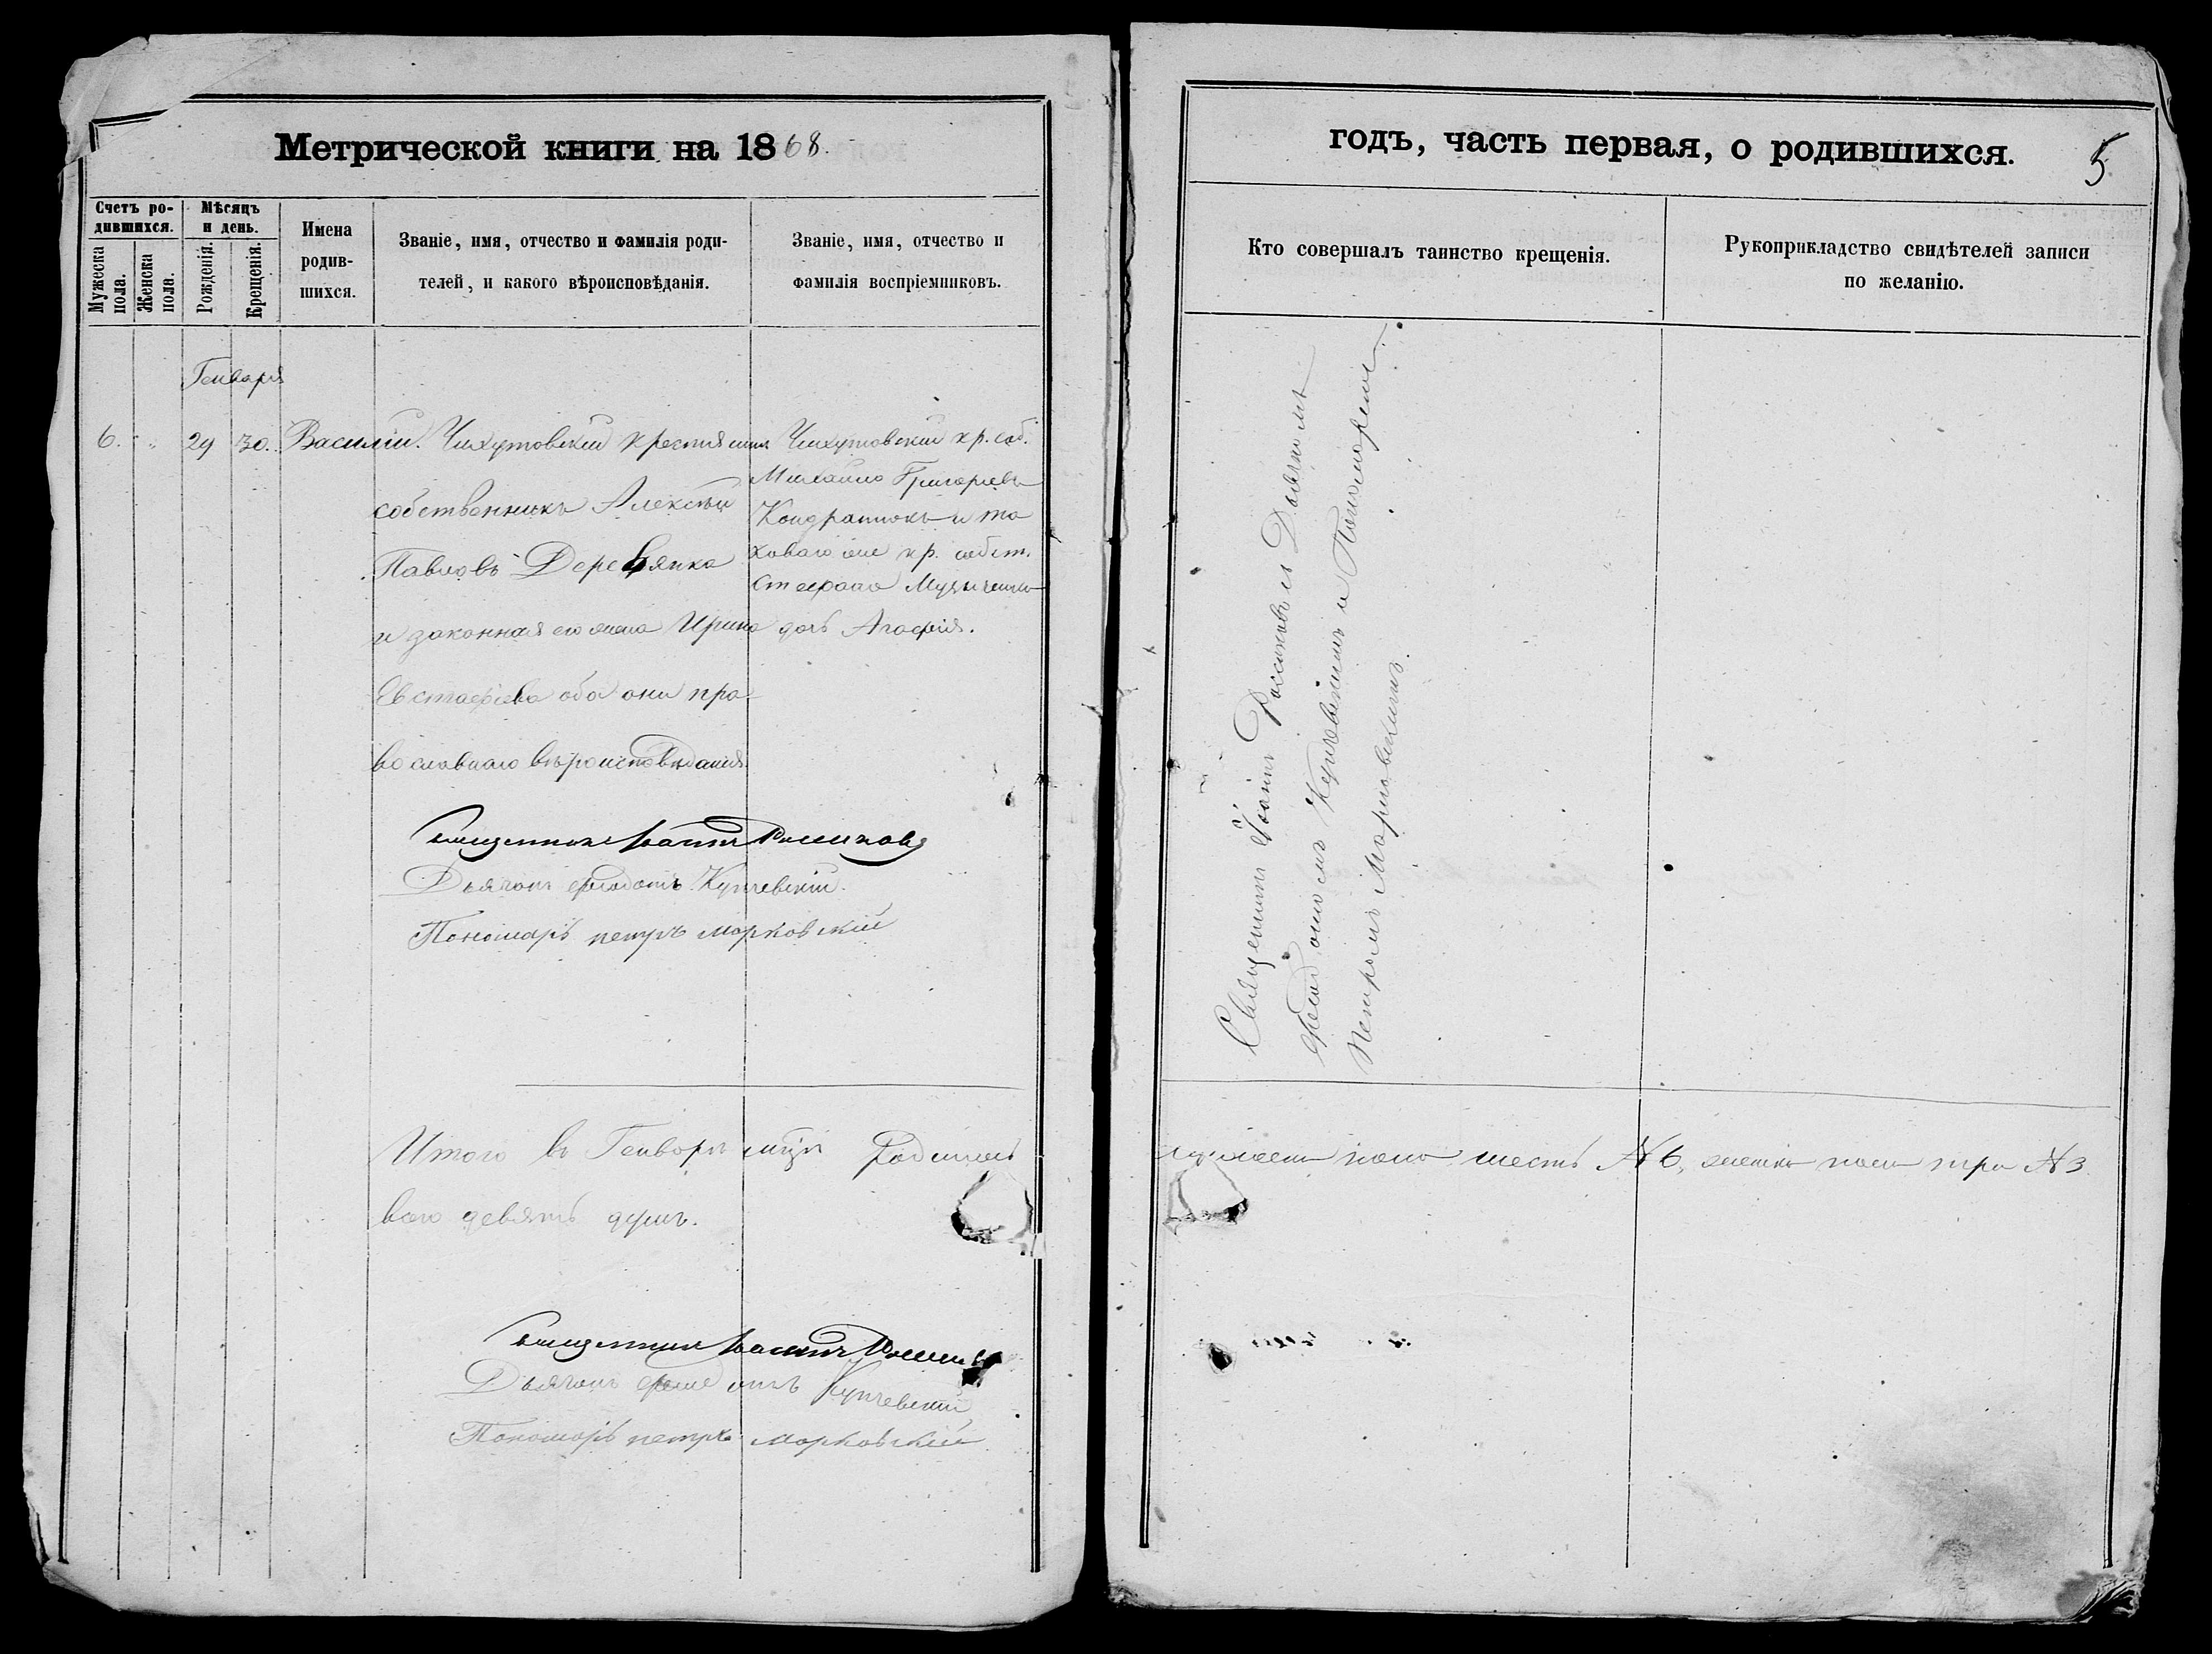 Метрической книги на 1868.
годъ, часть первая, о родившихся.
5
Счетъ ро-
дившихся.
Мужеска
пола.
Женска
пола.
Мѣсяцъ
и день.
Рожденія.
Крещенія.
Имена
родив-
шихся.
Званіе, имя, отчество и фамилія роди-
телей, и какого вѣроисповѣданія.
Званіе, имя, отчество и
фамилія воспріемниковъ.
Кто совершалъ таинство крещенія.
Рукоприкладство свидѣтелей записи
по желанію.
Генваря
6. „ 29 30. Василій.
Чихутовскій крестянинъ
собственникъ Алексѣй
Павловъ Деревянка
и законная его жена Ирина
Евстафіева оба они пра-
вославнаго вѣроисповѣданія
Чихутовскій кр. соб.
Михаило Григоріевъ
Кондратюкъ и та
коваго же кр. собст.
Стефана
дочь Агафія.
Священникъ Іоаннъ
Дьячокъ Ѳеодотъ Купчевскій.
Пономарь петръ марковскій
Священникъ Іоаннъ съ Дьячкомъ
Ѳеодотомъ Купчевскимъ и Пономаремъ
Петромъ Марковскимъ.
Итого въ Генварѣ мцѣ Родилось
мужеска пола шесть № 6, женска пола три № 3
всего девять душъ.
Священникъ Іоаннъ
Дьячокъ Купчевскій
Пономарь петръ марковскій